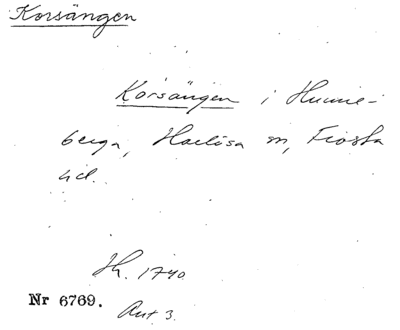 Korsängen
Korsängen i Humle-
berga, Harlösa sn, Frosta
hd.
Jh. 1740
Nr 6769.
Akt 3.